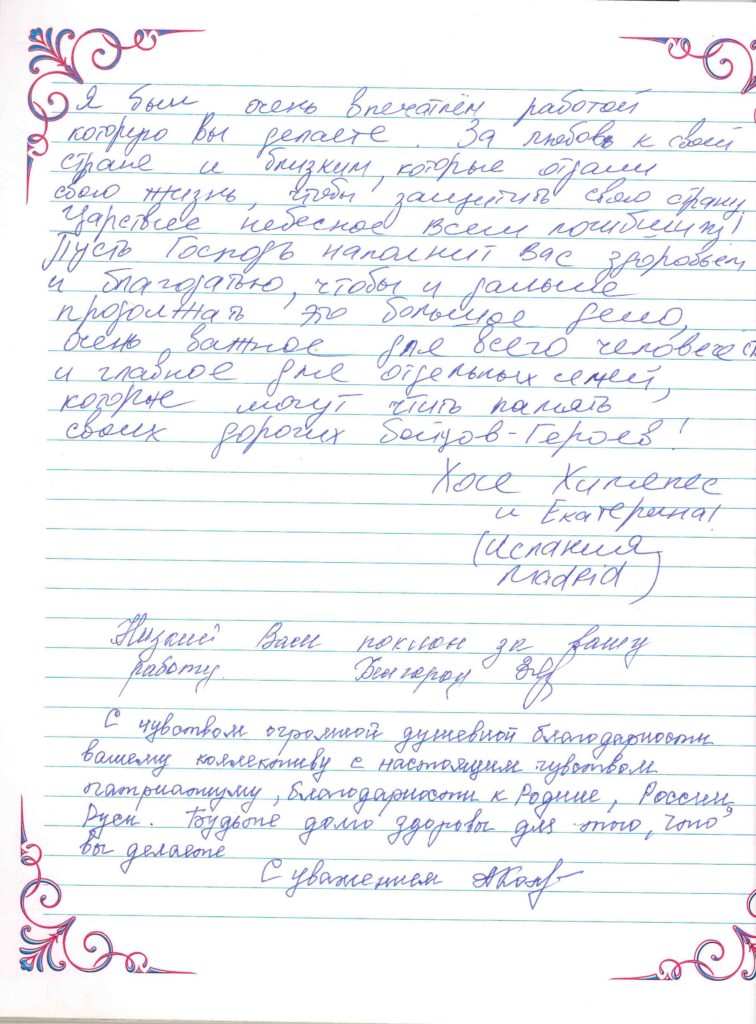 Я был очень впечатлён работой
которую Вы делаете. За любовь к своей
стране и близким, которые отдали
свою жизнь, чтобы защитить свою страну
Царствие небесное всем погибшим!
Пусть Господь наполнит Вас здоровьем
и благодатью, чтобы и дальше
продолжать это большое дело,
очень важное для всего человечест
и главное для отдельных семей,
которые могут чтить память
своих дорогих бойцов-Героев!
Хосе Хименес
и Екатерина!
(Испания
Madrid)
Низкий Вам поклон за вашу
работу. Белгород
С чувством огромной душевной благодарности
вашему коллективу с настоящим чувством
патриатизму, благодарности к Родине, России,
Руси. Будьте долго здоровы для того, что
вы делаете
С уважением